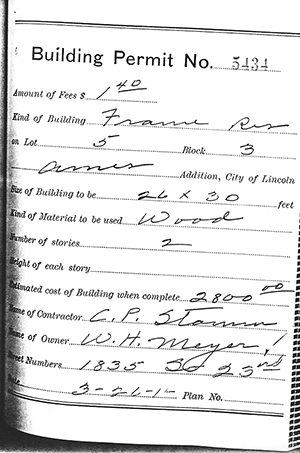 Building Permit No. 5434
Amount of Fees $ 1 40
Kind of Building Frame Res
on Lot 5 Block 3
Ames Addition, City of Lincoln
Size of Building to be 26 x 30 feet
Kind of Material to be used Wood
Number of stories 2
Height of each story
Estimated cost of Building when complete 2800 00
Name of Contractor C. P.
Name of Owner W. H. Meyer
Street Numbers 1835 So 23rd
Plan No.